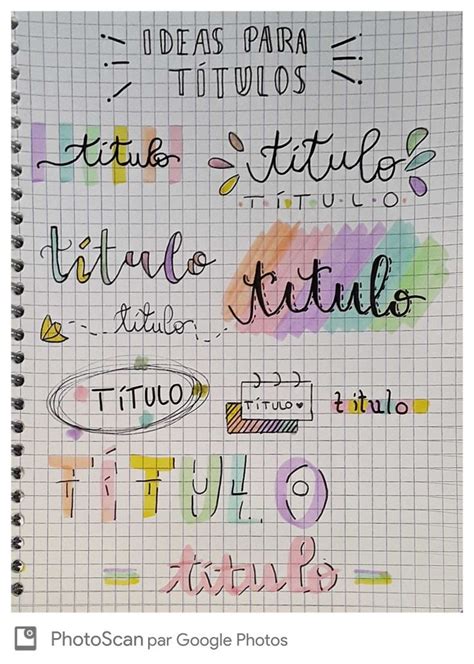 IDEAS PARA
TÍTULOS
título
título
TÍTULO
título
título
título
TÍTULO
TÍTULO
título
TÍTULO
título
PhotoScan par Google Photos